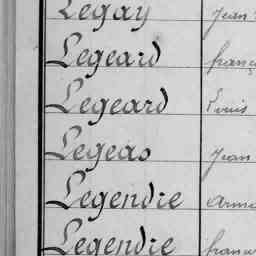 Legay Jean
Legeard franç
Legeard Louis
Legeas Jean
Legendre Arma
Legendre franc